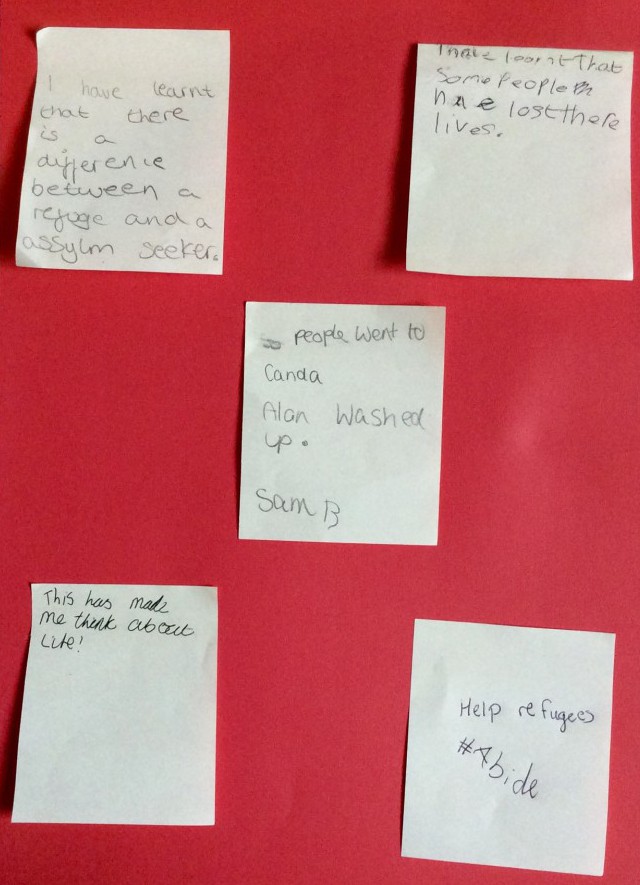 I have learnt
that there
is a
difference
between a
refuge and a
assylm seeker.
I have learnt That
Some People
have lost there
lives.
people went to
Canda
Alan Washed
up.
Sam B
This has made
me think about
Life!
Help refugees
#Abide